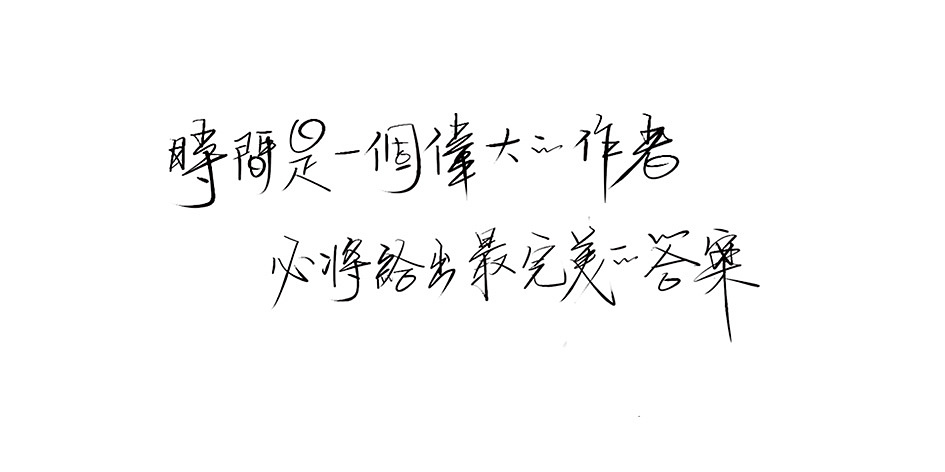 時間是一個偉大的作者
必將給出最完美的答案